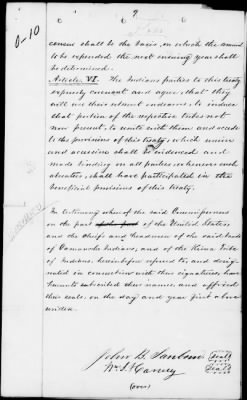 7
0-10
census shall be the basis, on which the amount
to be expended the next ensuing year shall
be determined.
Article VI. The Indians parties to this treaty
expressly covenant and agree, that they
will use their utmost endeavor, to induce
that portion of the respective tribes not
now present, to unite with them and accede
to the provisions of this treaty, which union
and accession shall be evidenced and
made binding on all parties, whenever such
absentees, shall have participated in the
beneficial provisions of this treaty.
In testimony whereof the said Commissioners
on the part of the part of the United States
and the Chiefs and headmen of the said
of Comanche Indians, and of the Kiowa tribe
of Indians, hereinbefore referred to, and desig-
nated in connection with their signatures, have
hereunto subscribed their names, and affixed
their seals, on the day and year first above
written.
John B. Sanborn Seal
Wm. S. Harney Seal
(over)